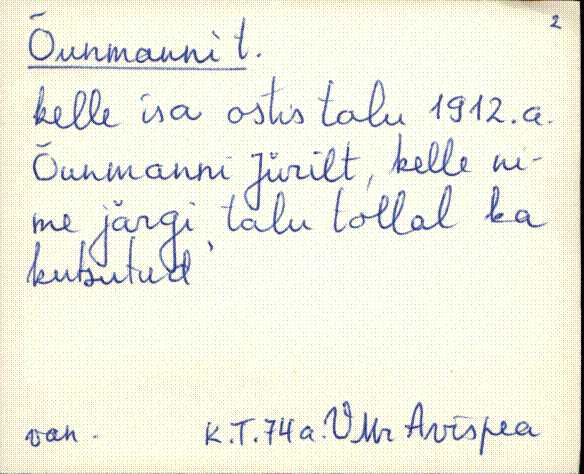 2
Õunmanni t.
kelle isa ostis talu 1912.a.
Õunmanni Jürilt, kelle ni-
me järgi talu tollal ka
kutsutud'
van. K.T. 74 a. VMr Avispea